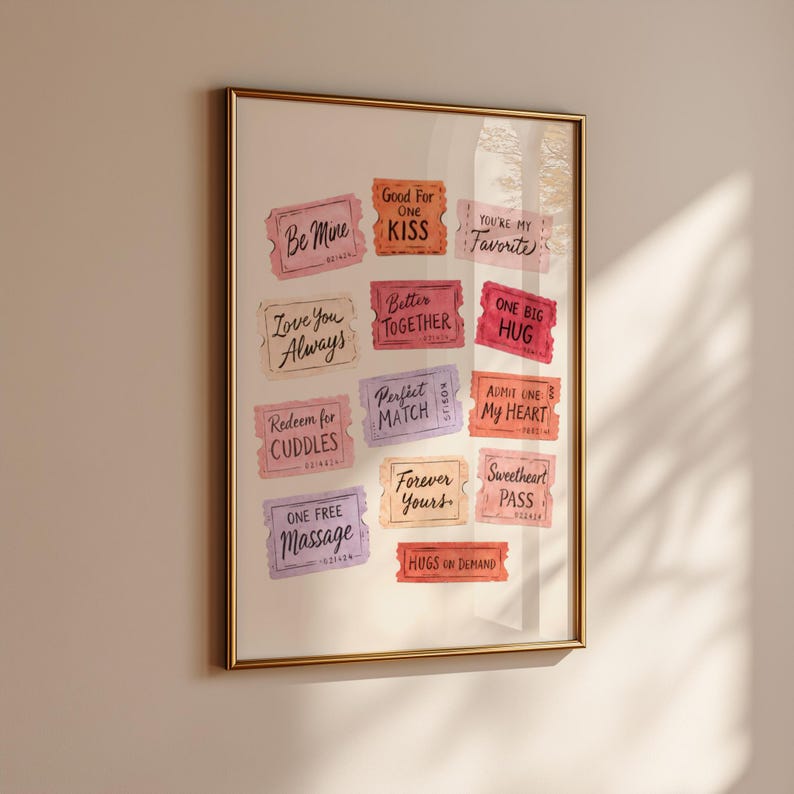 Be Mine
021424
Good For
One
KISS
YOU'RE MY
Favorite
Love You
Always
Better
TOGETHER
021424
ONE BIG
HUG
Redeem for
CUDDLES
0214424
Perfect
MATCH
ADMIT ONE:
My HEART
ONE FREE
Massage
021424
Forever
Yours
Sweetheart
PASS
022424
HUGS ON DEMAND